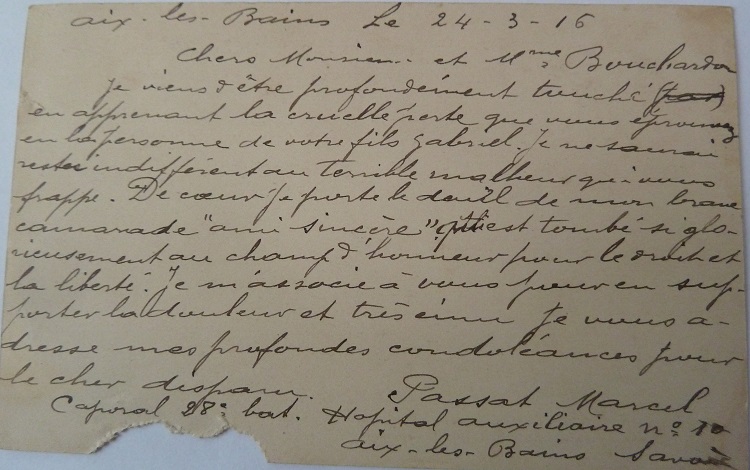 aix-les-Bains le 24-3-16
Chers Monsieur et Mme Bouchardon
Je viens d'être profondément touché
en apprenant la cruelle perte que vous éprouvez
en la personne de votre fils Gabriel. Je ne saurai
rester indifférent au terrible malheur qui vous
frappe. De cœur je porte le deuil de mon brave
camarade "ami sincère" qui est tombé si glo-
rieusement au champ d'honneur pour le droit et
la liberté. Je m'associe à vous pour en sup-
porter la douleur et très ému je vous a-
dresse mes profondes condoléances pour
le cher disparu.
Passat Marcel
Caporal 28e bat. Hopital auxiliaire no 10
aix-les-Bains Savoie